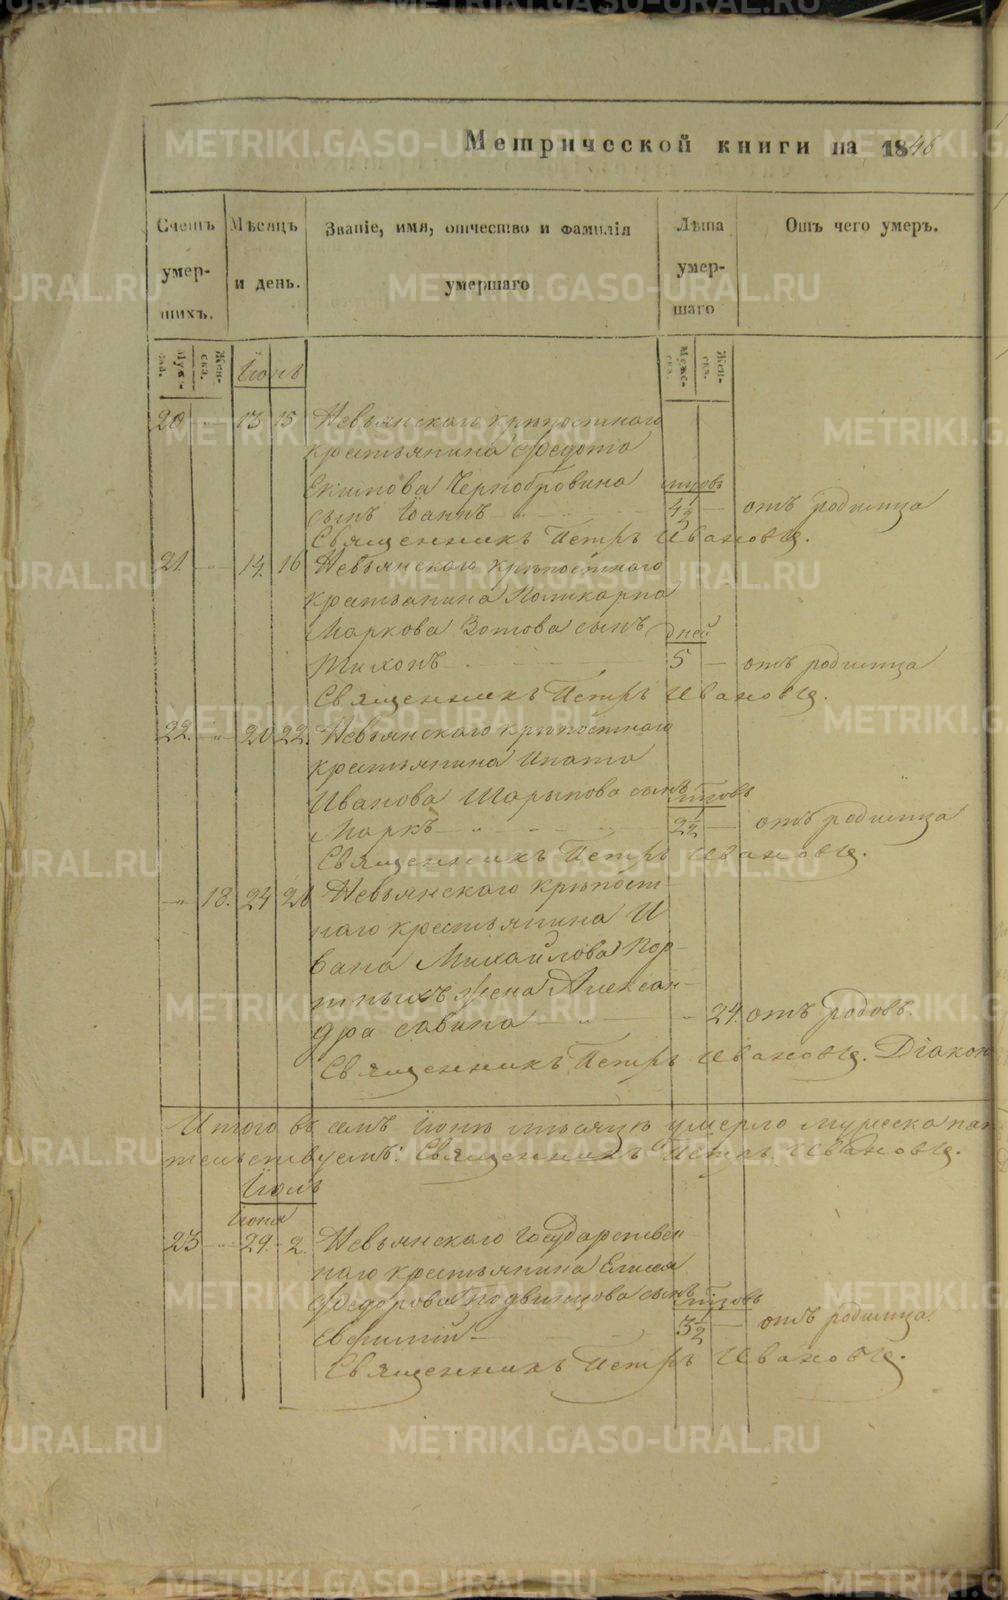 Метрической книги на 1846
Счетъ умер- шихъ.
Мѣсяцъ и день.
Званіе, имя, отчество и фамилія умершаго
Лѣта умер- шаго
Отъ чего умеръ.
Муже- ска.
Жен- ска.
Муже- ска.
Жен- ска.
Іюнь
20 13 15 Невьянскаго крѣпостнаго
крестьянина Федота
Екимова Чернобровина годовъ
сынъ Іоаннъ 4 1/2 отъ родимца
Священникъ Петръ Ивановъ.
21. 14. 16 Невьянскаго крѣпостнаго
крестьянина Поликарпа
Маркова Зотова сынъ дней
Тихонъ 5 отъ родимца
Священникъ Петръ Ивановъ.
22. 20 22. Невьянскаго крѣпостнаго
крестьянина Ипата
Иванова Шарыпова сынъ годовъ
Маркъ 2 1/2 отъ родимца
Священникъ Петръ Ивановъ.
18. 24 26 Невьянскаго крѣпост-
наго крестьянина И
вана Михайлова Пор-
тныхъ жена Алексан-
дра Савина 24 отъ родовъ.
Священникъ Петръ Ивановъ. Діакон
Итого въ семъ Іюнѣ мѣсяцѣ умерло мужеска пол
тельствуемъ: Священникъ Петръ Ивановъ.
Іюль
Іюня
23 29 2. Невьянскаго Государствен
наго крестьянина Елисея
Федорова Подвинцова сынъ годовъ
Евфимій 3 1/2 отъ родимца.
Священникъ Петръ Ивановъ.
METRIKI.GASO-URAL.RU